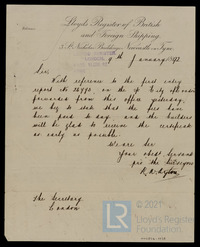 Lloyd's Register of British
and Foreign Shipping.
3, St. Nicholas Buildings, Newcastle-on-Tyne.
9th January 1892
Sir,
With reference to the first entry
report No. on the
forwarded from this office yesterday,
we beg to state that the fees have
been paid to day, and the builders
will be glad to receive the certificate
as early as possible.
We are Sir
Your obedt Servants
for the Surveyors
The Secretary
London
© 2021